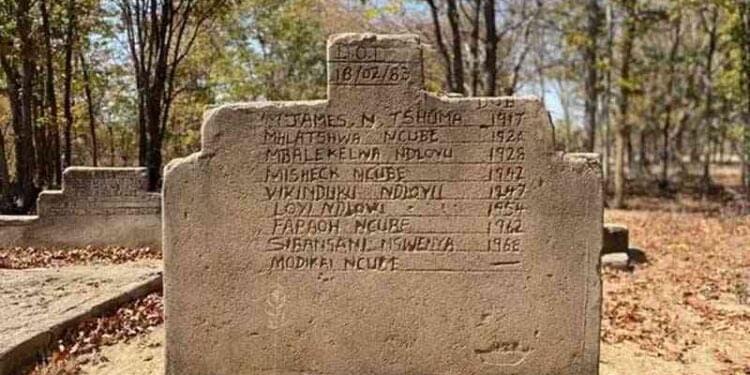 D.O.D
18/02/83
D.O.B
M.JAMES N TSHUMA 1917
MHLATSHWA NCUBE 1926
MBALEKELWA NDLOVU 1928
MISHECK NCUBE 1942
VIKINDUKU NDLOVU 1947
LOYI NDLOWI 1954
FARAOH NCUBE 1962
SIBANSANI NSWENYA 1968
MODIKAI NCUBE —